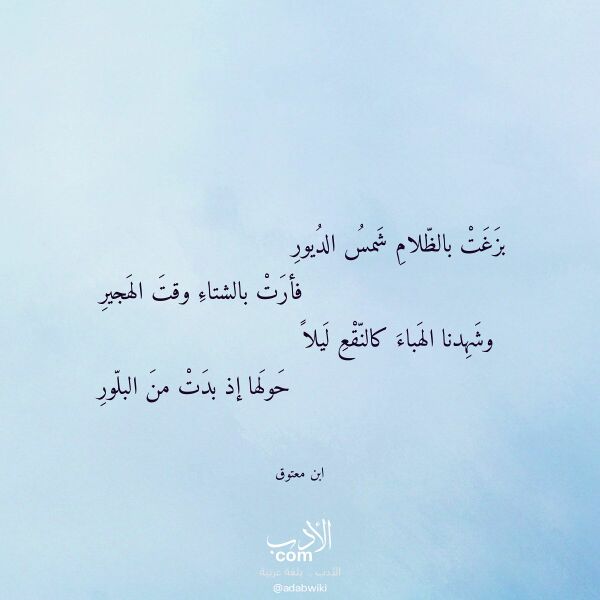 بزَغَتْ بالظّلامِ شَمسُ الدُيورِ
فأرَتْ بالشتاءِ وقتَ الهَجيرِ
وشَهِدنا الهَباءَ كالنّقْعِ لَيلاً
حَولَها إذ بدَتْ منَ البلّورِ
ابن معتوق
الأدب
com
الأدب .. بلغة عربية
@adabwiki